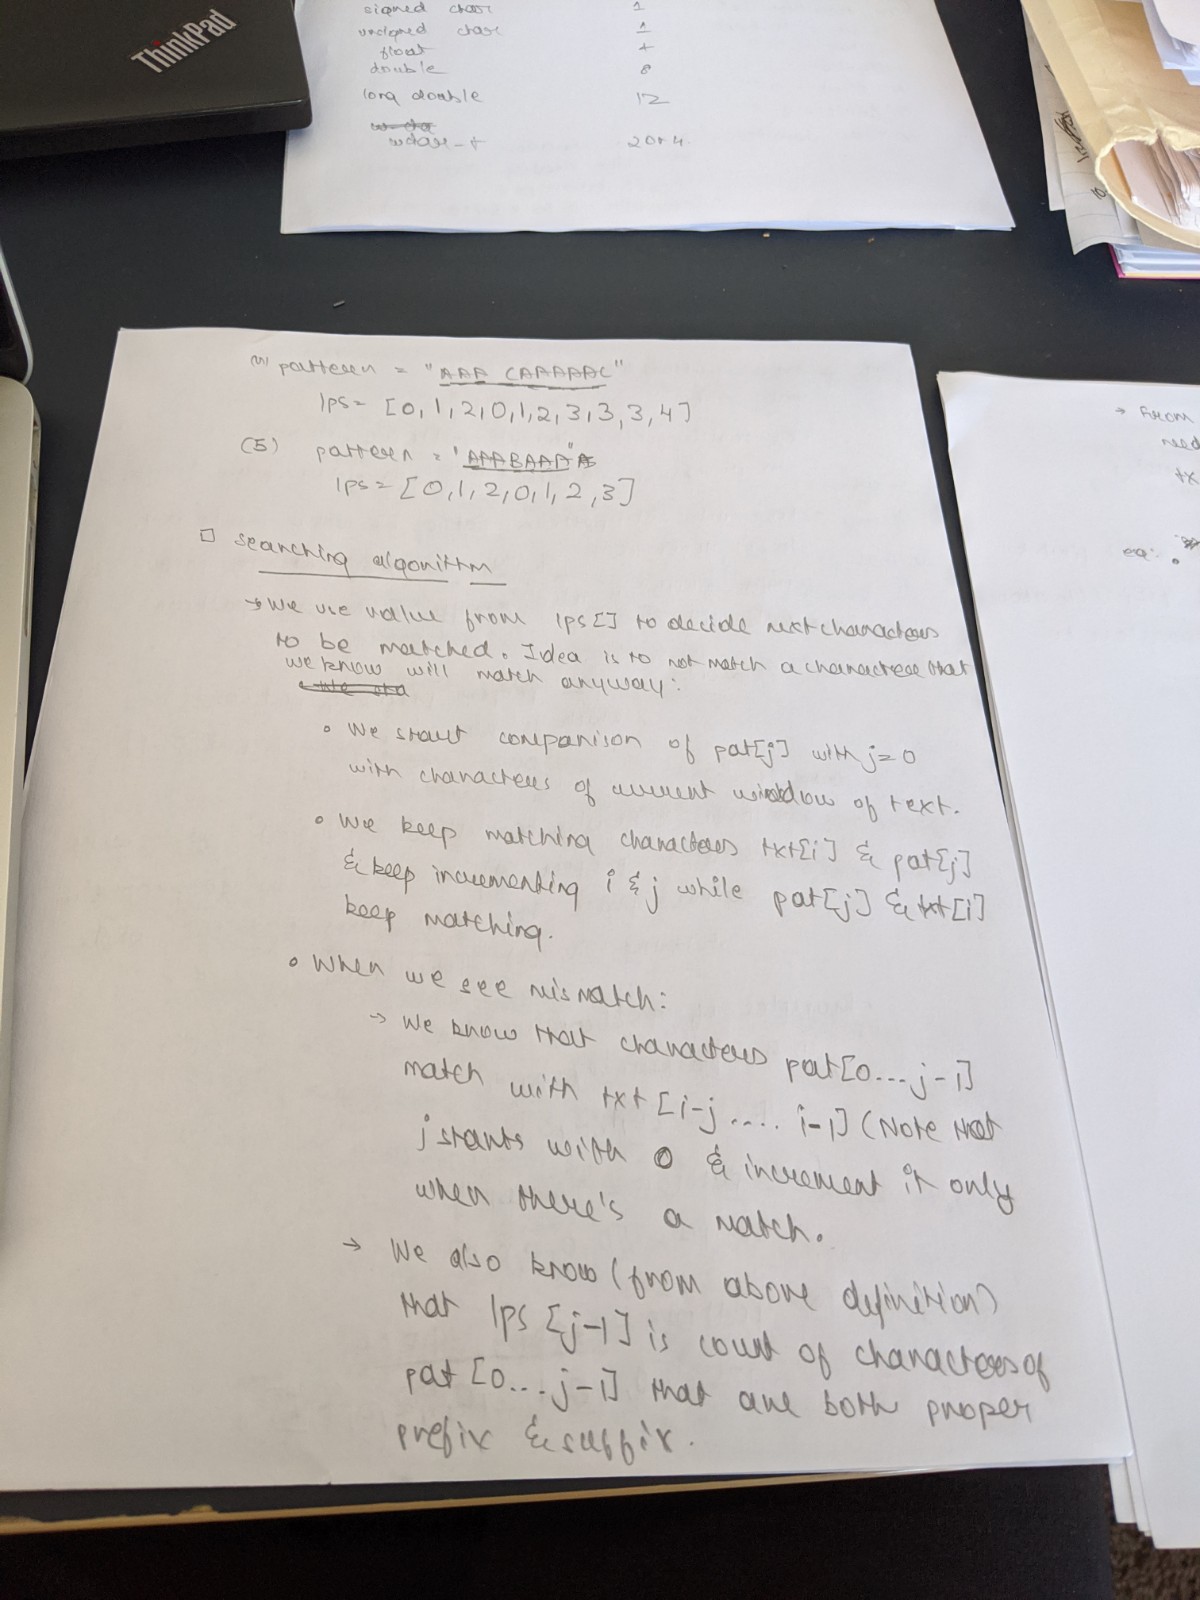 ThinkPad
signed char 1
unsigned char 1
float 4
double 8
long double 12
wchar_t 2 or 4
pattern = "AAA CAAAAAC"
lps = [0,1,2,0,1,2,3,3,3,4]
(5) pattern = "AAABAAA"
lps = [0,1,2,0,1,2,3]
□ searching algorithm
→ we use value from lps[] to decide next characters
to be matched. Idea is to not match a character that
we know will match anyway:
• We start comparison of pat[j] with j=0
with characters of current window of text.
• We keep matching characters txt[i] & pat[j]
& keep incrementing i & j while pat[j] & txt[i]
keep matching.
• When we see mismatch:
→ We know that characters pat[0...j-1]
match with txt [i-j .... i-1] (Note that
j starts with 0 & increment it only
when there's a match.
→ We also know (from above definition)
that lps [j-1] is count of characters of
pat [0...j-1] that are both proper
prefix & suffix.
→ From
need
tx
eg: